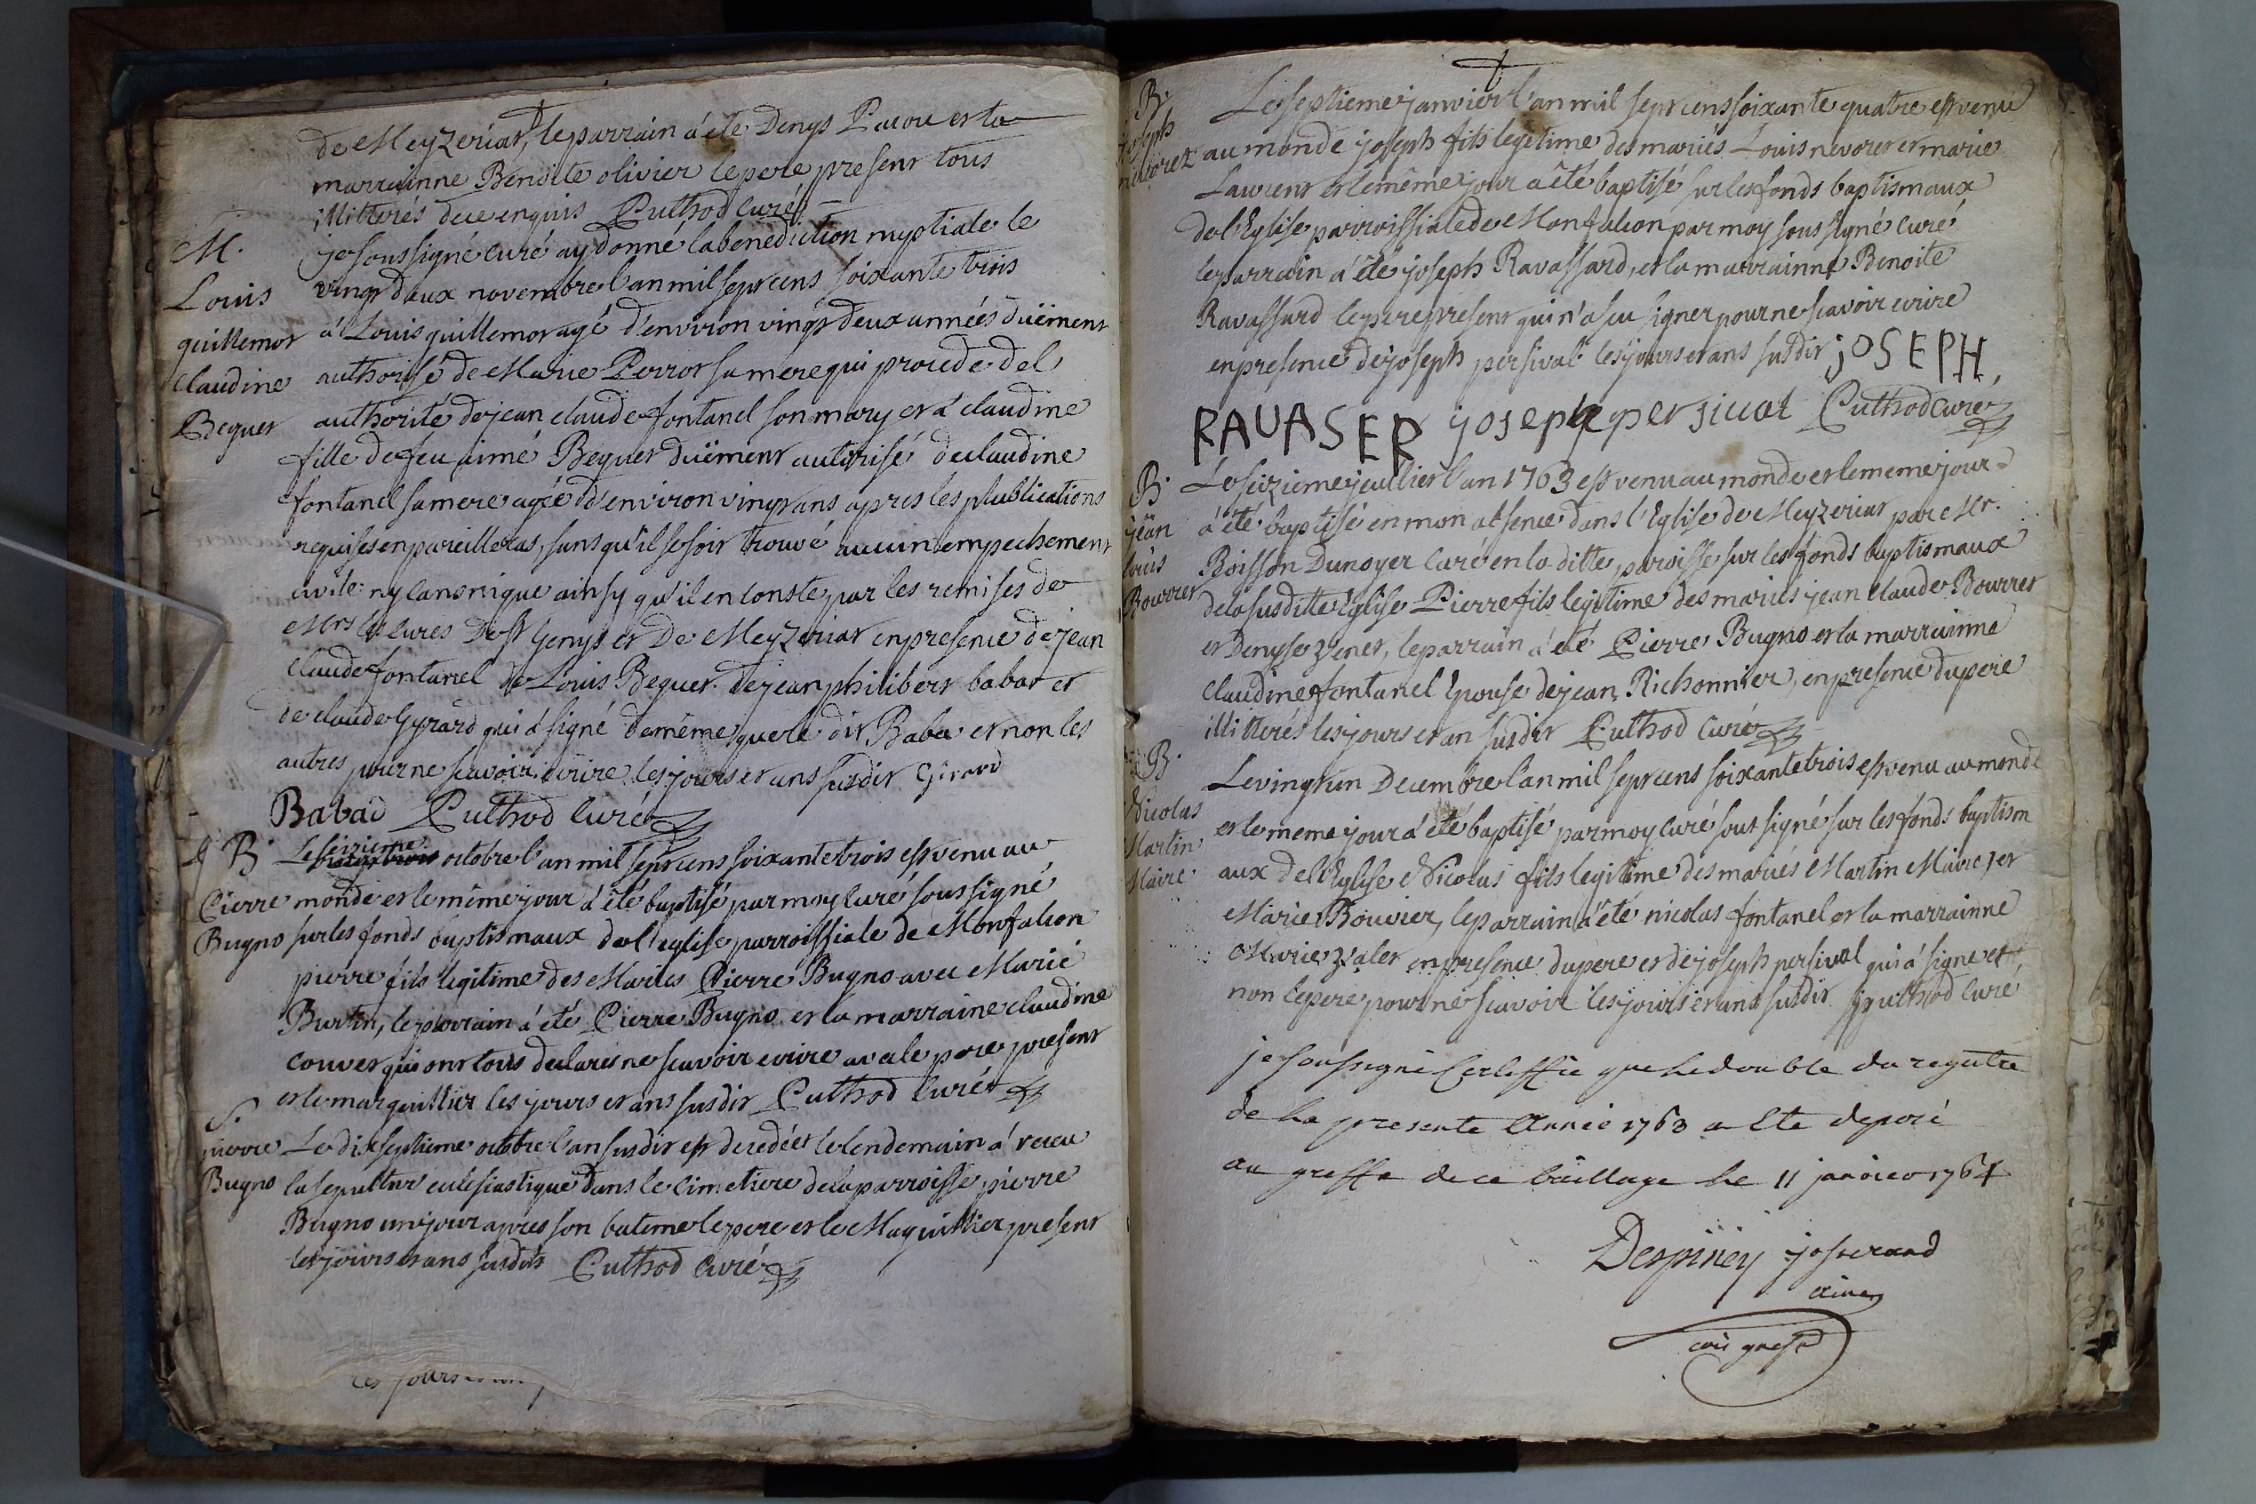 de Meyzeriat, le parrain á eté Denys Pacou et la
marrainne Benoite olivier le pere present tous
illitterés de ce enquis Puthod Curé
M.
Louis
guillemot
Claudine
Beguet
je sous signé curé ay donné la benediction nuptiale le
vingt deux novembre l'an mil sept cens soixante trois
á Louis guillemot agé d'environ vingt deux années düement
authorisé de Marie Perrot sa mere qui procede de l'
authorité de jean claude fontanel son mary et á claudine
fille de feu aimé Beguet düement autorisé de claudine
fontanel sa mere agée d'environ vingt ans apres les plublications
requises en pareille cas, sans qu'il se soit trouvé aucun empechement
civile ny canonique ainsy qu'il en conste par les remises de
Mrs les Cures De st Genys et De Meyzeriat en presence de jean
claude fontanel de Louis Beguet. de jean philibert babat et
de claude Gyrard qui á signé de même que le dit Baba et non les
autres pour ne scavoir écrire les jours et ans susdit Girard
Babad Puthod Curé
B
Pierre
Bugno
Le seizieme octobre l'an mil sept cens soixante trois est venu au
monde et le même jour á été baptisé par moy curé sous signé
sur les fonds baptismaux de l'eglise parroissiale de Monfalcon
pierre fils legitime des Mariés Pierre Bugno avec Marie
Burtin, le parrain á été Pierre Bugno et la marraine claudine
couvet qui ont tous declarés ne scavoir ecrire avec le pere present
et le marguillier les jours et ans susdit Puthod Curé
S
pierre
Bugno
Le dix septieme octobre l'an susdit est decedé et le lendemain á recu
la sepulture eclésiastique dans le cimetiere de la parroisse pierre
Bugno un jour apres son bateme le pere et le Maguillier present
les jours et ans susdits Puthod Curé
les jours et an
B.
joseph
nevoret
Le septieme janvier l'an mil sept cens soixante quatre est venu
au monde joseph fils legitime des mariés Louis nevoret et marie
Laurent et le même jour a été baptisé sur les fonds baptismaux
de l'Eglise parroissiale de Monfalcon par moy sous signé curé
le parrain á éte joseph Ravassard, et la marrainne Benoite
Ravassard le pere present qui n'a scu signer pour ne scavoir ecrire
en presence de joseph persival les jours et ans susdit jOSEPH
RAVASER joseph persival Puthod Curé
B.
jean
louis
Bourret
Le seizieme jeullier l'an 1763 est venu au monde et le meme jour
á été baptisé en mon absence dans l'Eglise de Meyzeriat par Mr.
Boisson Dunoyer Curé en la ditte paroisse sur les fonds baptismaux
de la susditte Eglise Pierre fils legitime des mariés jean claude Bourret
et Denyse venet, le parrain á été Pierre Bugno et la marrainne
claudine fontanel Epouse de jean Richonnier, en presence du pere
illitterés les jours et an susdit Puthod Curé
B.
Nicolas
Martin
Maire
Le vingt un Decembre l'an mil sept cens soixante trois est venu au monde
et le meme jour á été baptisé par moy curé sous signé sur les fonds baptism
aux de l'Eglise Nicolas fils legitime des mariés Martin Maire et
Marie Bouvier, le parrain á été nicolas fontanel et la marrainne
Marie en presence du pere et de joseph persival qui á signé et
non le pere pour ne scavoir les jours et ans susdit puthod Curé
je soussigné Certiffie que le double du registre
de la presente année 1763 a ete deposé
au greffe de ce bailliage le 11 janvier 1764
Despiney josserand
aine